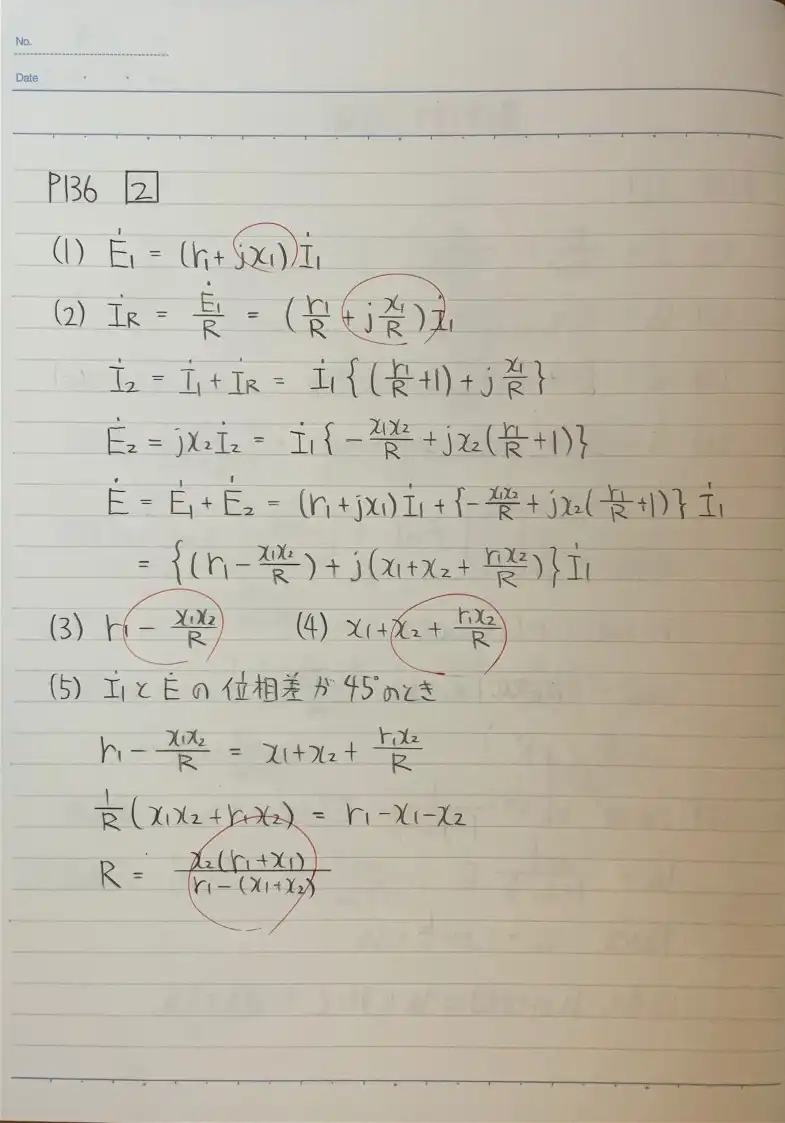 No.
Date
P136 2
(1) Ė₁ = (r₁ + jx₁) İ₁
(2) İR = Ė₁/R = (r₁/R + j x₁/R) İ₁
İ₂ = İ₁ + İR = İ₁ { (r₁/R + 1) + j x₁/R }
Ė₂ = jx₂İ₂ = İ₁ { - x₁x₂/R + jx₂(r₁/R + 1) }
Ė = Ė₁ + Ė₂ = (r₁ + jx₁) İ₁ + { - x₁x₂/R + jx₂(r₁/R + 1) } İ₁
= { (r₁ - x₁x₂/R) + j(x₁ + x₂ + r₁x₂/R) } İ₁
(3) r₁ - x₁x₂/R (4) x₁ + x₂ + r₁x₂/R
(5) İ₁とĖの位相差が45°のとき
r₁ - x₁x₂/R = x₁ + x₂ + r₁x₂/R
1/R (x₁x₂ + r₁x₂) = r₁ - x₁ - x₂
R = x₂(r₁ + x₁)/r₁ - (x₁ + x₂)